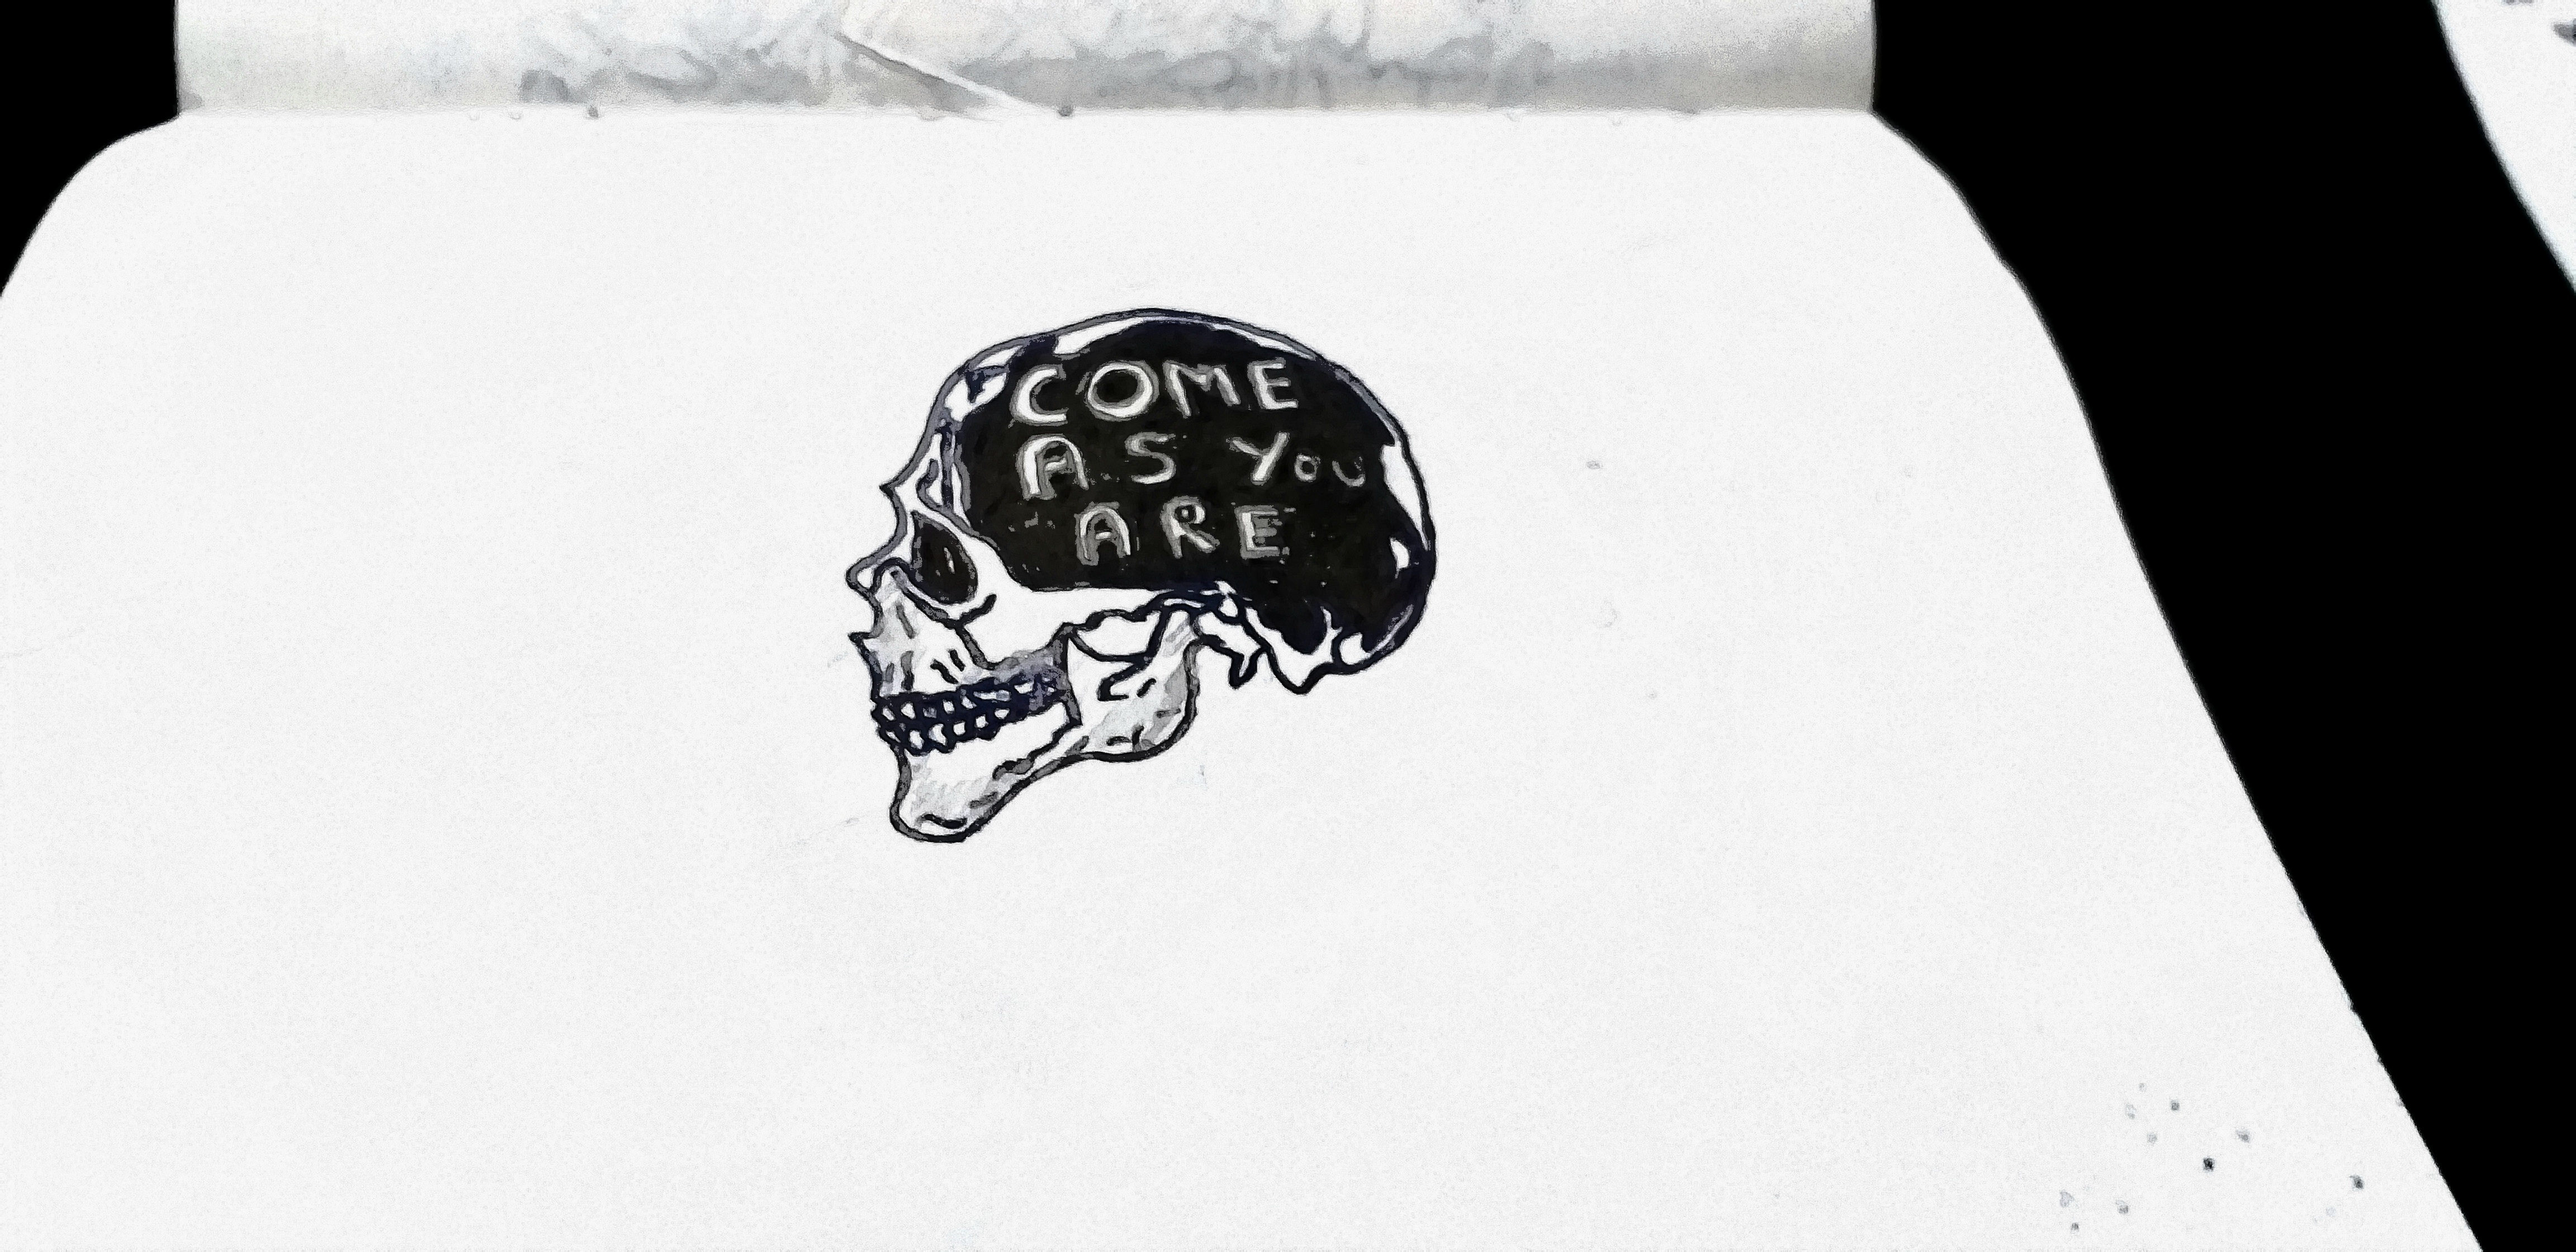 COME
AS You
ARE